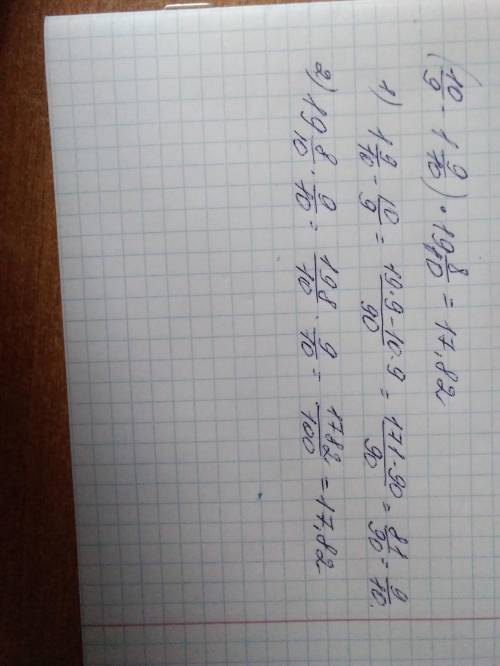 (10/9 - 1 9/10) • 19 8/10 = 17,82
1) 1 9/10 - 10/9 = 19·9-10·9/90 = 171-90/90 = 81/90 = 9/10.
2) 19 8/10 · 9/10 = 198/10 · 9/10 = 1782/100 = 17,82